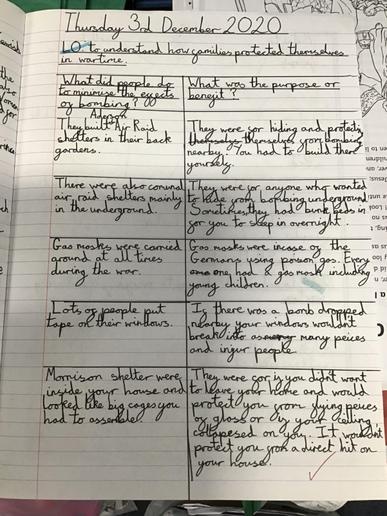 Thursday 3rd December 2020
LO: to understand how families protected themselves
in wartime.
What did people do
to minimise the effects
of bombing?
What was the purpose or
benefit?
They built Air Raid
shelters in their back
gardens.
They were for hiding and
themselves from bombing
nearby. You had to build
yourself.
There were also comunal
air raid shelters mainly
in the underground.
They were for anyone who wanted
to hide from bombing underground.
Sometimes they had bunk beds in
for you to sleep in overnight.
Gas masks were carried
around at all times
during the war.
Gas masks were incase of the
Germans using poison gas. Every
one had a gas mask including
young children.
Lots of people put
tape on their windows.
If there was a bomb dropped
nearby your windows wouldn't
break into many peices
and injur people.
Morrison shelter were
inside your house and
looked like big cages you
had to assemble.
They were for if you didn't want
to leave your home and would
protect you from flying peices
of glass or if your ceiling
collapesed on you. It wouldn't
protect you from a direct hit on
your house.